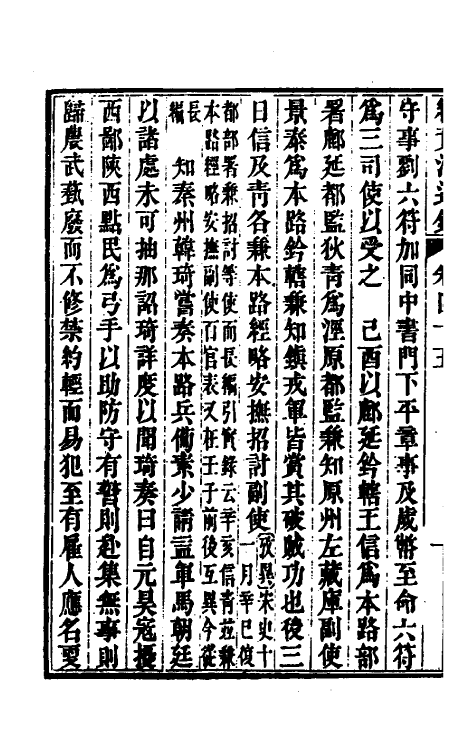 續資治通鑑 卷四十五
守事劉六符加同中書門下平章事及歲幣至命六符
爲三司使以受之　己酉以鄜延鈐轄王信爲本路部
署鄜延都監狄青爲涇原都監兼知原州左藏庫副使
景泰爲本路鈐轄兼知鎭戎軍皆賞其破賊功也後三
日信及青各兼本路經略安撫招討副使攷異宋史十一月辛巳復
都部署兼招討等使而長編引實錄云辛亥信青並兼
本路經略安撫副使百官表又在壬子前後互異今從
長編　知秦州韓琦嘗奏本路兵備素少請益軍馬朝廷
以諸處未可抽那詔琦詳度以聞琦奏曰自元昊寇擾
西鄙陝西點民爲弓手以助防守有警則赴集無事則
歸農武藝廢而不修禁約輕而易犯至有雇人應名更